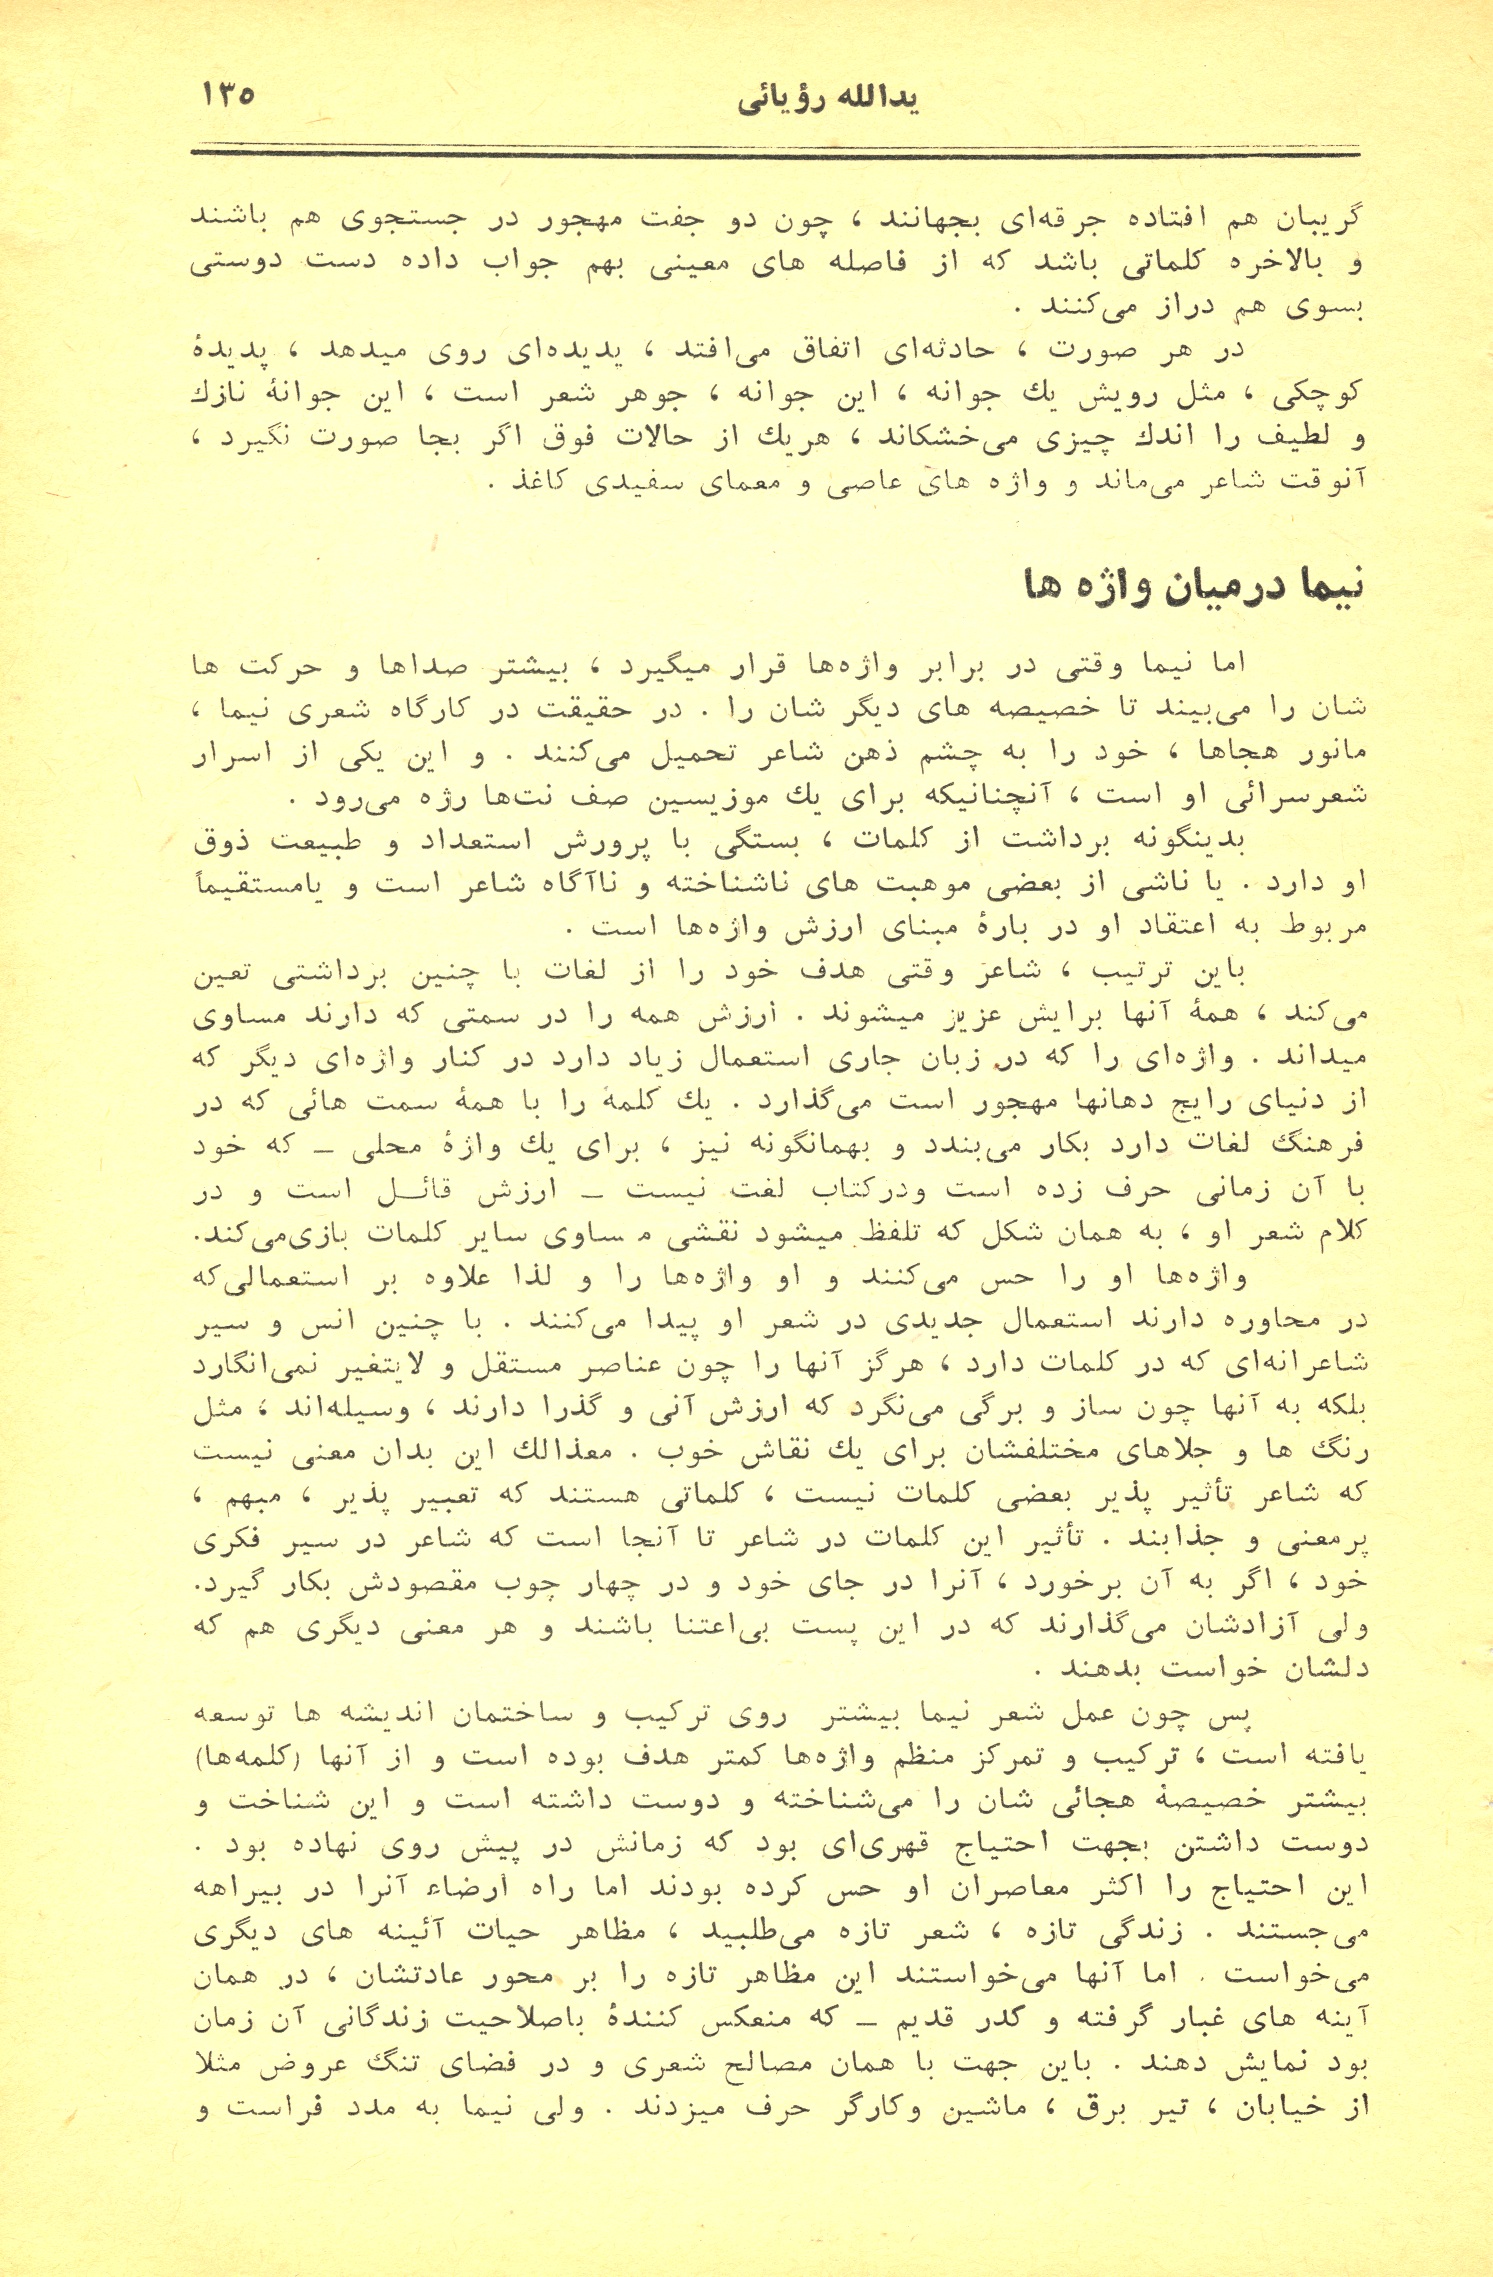 یدالله رؤیائی
۱۳۵
گریبان هم افتاده جرقه‌ای بجهانند ، چون دو جفت مهجور در جستجوی هم باشند
و بالاخره کلماتی باشد که از فاصله های معینی بهم جواب داده دست دوستی
بسوی هم دراز می‌کنند .
در هر صورت ، حادثه‌ای اتفاق می‌افتد ، پدیده‌ای روی میدهد ، پدیدهٔ
کوچکی ، مثل رویش یك جوانه ، این جوانه ، جوهر شعر است ، این جوانهٔ نازك
و لطیف را اندك چیزی می‌خشکاند ، هریك از حالات فوق اگر بجا صورت نگیرد ،
آنوقت شاعر می‌ماند و واژه های عاصی و معمای سفیدی کاغذ .
نیما درمیان واژه ها
اما نیما وقتی در برابر واژه‌ها قرار میگیرد ، بیشتر صداها و حرکت ها
شان را می‌بیند تا خصیصه های دیگر شان را . در حقیقت در کارگاه شعری نیما ،
مانور هجاها ، خود را به چشم ذهن شاعر تحمیل می‌کنند . و این یکی از اسرار
شعرسرائی او است ، آنچنانیکه برای یك موزیسین صف نت‌ها رژه می‌رود .
بدینگونه برداشت از کلمات ، بستگی با پرورش استعداد و طبیعت ذوق
او دارد . یا ناشی از بعضی موهبت های ناشناخته و ناآگاه شاعر است و یامستقیماً
مربوط به اعتقاد او در بارهٔ مبنای ارزش واژه‌ها است .
باین ترتیب ، شاعر وقتی هدف خود را از لغات با چنین برداشتی تعین
می‌کند ، همهٔ آنها برایش عزیز میشوند . ارزش همه را در سمتی که دارند مساوی
میداند . واژه‌ای را که در زبان جاری استعمال زیاد دارد در کنار واژه‌ای دیگر که
از دنیای رایج دهانها مهجور است می‌گذارد . یك کلمه را با همهٔ سمت هائی که در
فرهنگ لغات دارد بکار می‌بندد و بهمانگونه نیز ، برای یك واژهٔ محلی ـ که خود
با آن زمانی حرف زده است ودرکتاب لغت نیست ـ ارزش قائـل است و در
کلام شعر او ، به همان شکل که تلفظ میشود نقشی مساوی سایر کلمات بازی‌می‌کند.
واژه‌ها او را حس می‌کنند و او واژه‌ها را و لذا علاوه بر استعمالی‌که
در محاوره دارند استعمال جدیدی در شعر او پیدا می‌کنند . با چنین انس و سیر
شاعرانه‌ای که در کلمات دارد ، هرگز آنها را چون عناصر مستقل و لایتغیر نمی‌انگارد
بلکه به آنها چون ساز و برگی می‌نگرد که ارزش آنی و گذرا دارند ، وسیله‌اند ، مثل
رنگ ها و جلاهای مختلفشان برای یك نقاش خوب . معذالك این بدان معنی نیست
که شاعر تأثیر پذیر بعضی کلمات نیست ، کلماتی هستند که تعبیر پذیر ، مبهم ،
پرمعنی و جذابند . تأثیر این کلمات در شاعر تا آنجا است که شاعر در سیر فکری
خود ، اگر به آن برخورد ، آنرا در جای خود و در چهار چوب مقصودش بکار گیرد.
ولی آزادشان می‌گذارند که در این پست بی‌اعتنا باشند و هر معنی دیگری هم که
دلشان خواست بدهند .
پس چون عمل شعر نیما بیشتر روی ترکیب و ساختمان اندیشه ها توسعه
یافته است ، ترکیب و تمرکز منظم واژه‌ها کمتر هدف بوده است و از آنها (کلمه‌ها)
بیشتر خصیصهٔ هجائی شان را می‌شناخته و دوست داشته است و این شناخت و
دوست داشتن بجهت احتیاج قهری‌ای بود که زمانش در پیش روی نهاده بود .
این احتیاج را اکثر معاصران او حس کرده بودند اما راه ارضاء آنرا در بیراهه
می‌جستند . زندگی تازه ، شعر تازه می‌طلبید ، مظاهر حیات آئینه های دیگری
می‌خواست . اما آنها می‌خواستند این مظاهر تازه را بر محور عادتشان ، در همان
آینه های غبار گرفته و کدر قدیم ـ که منعکس کنندهٔ باصلاحیت زندگانی آن زمان
بود نمایش دهند . باین جهت با همان مصالح شعری و در فضای تنگ عروض مثلا
از خیابان ، تیر برق ، ماشین وکارگر حرف میزدند . ولی نیما به مدد فراست و